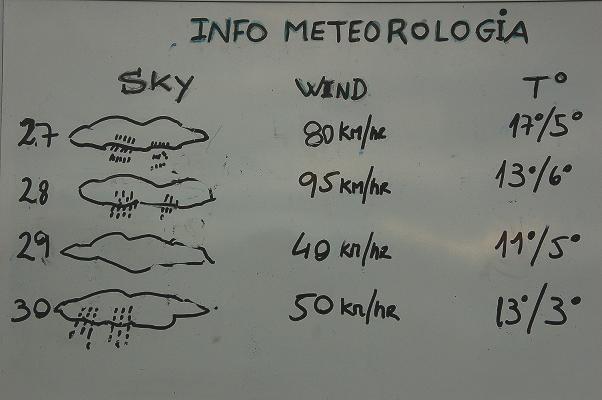 INFO METEOROLOGIA
SKY WIND T°
27 80 KM/HR 17°/5°
28 95 KM/HR 13°/6°
29 40 KM/HR 11°/5°
30 50 KM/HR 13°/3°